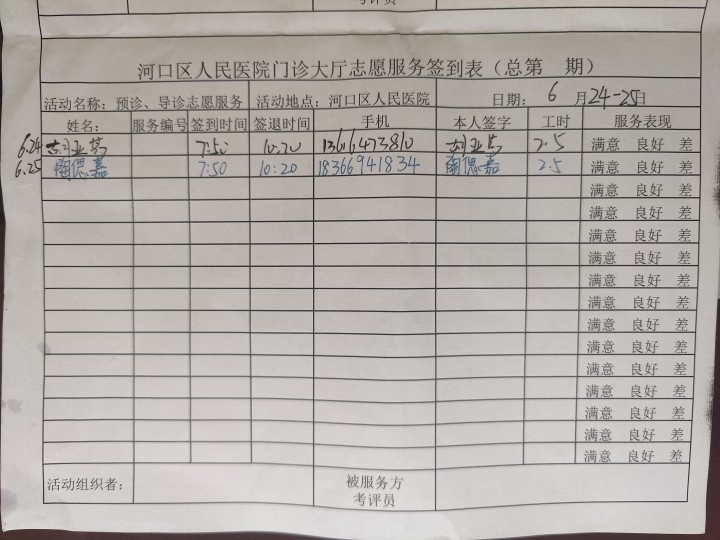 考评员
河口区人民医院门诊大厅志愿服务签到表（总第 期）
活动名称：预诊、导诊志愿服务 活动地点：河口区人民医院 日期： 6 月24-25日
姓名： 服务编号 签到时间 签退时间 手机 本人签字 工时 服务表现
6.24 7:50 10:20 13616473810 2.5 满意 良好 差
6.25 陶偲嘉 7:50 10:20 18366941834 陶偲嘉 2.5 满意 良好 差
满意 良好 差
满意 良好 差
满意 良好 差
满意 良好 差
满意 良好 差
满意 良好 差
满意 良好 差
满意 良好 差
满意 良好 差
满意 良好 差
满意 良好 差
满意 良好 差
满意 良好 差
活动组织者： 被服务方
考评员